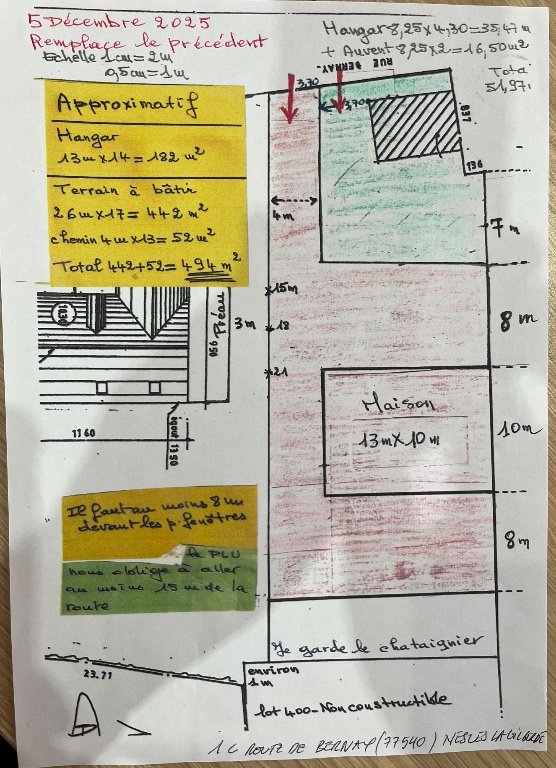 5 Décembre 2025
Remplace le précédent
Echelle 1cm = 2m
0,5cm = 1m
Hangar 8,25 x 4,30 = 35,47 m
+ Auvent 8,25 x 2 = 16,50 m²
Total
51,97
RUE BERNAY
3,70
3,70
837
136
Approximatif
Hangar
13m x 14 = 182 m²
Terrain à bâtir
26m x 17 = 442 m²
chemin 4m x 13 = 52 m²
Total 442+52 = 494 m²
4m
7m
15m
3m
18
8m
21
1130
Préau
950
Maison
13m x 10m
10m
1160
égout 1350
Il faut au moins 8m
devant les p. fenêtres
le PLU
nous oblige à aller
au moins 15m de la
route
8m
Je garde le chataignier
23.71
environ
1m
lot 400 - Non constructible
1C ROUTE DE BERNAY (77540) NESLES LA GILBERDE